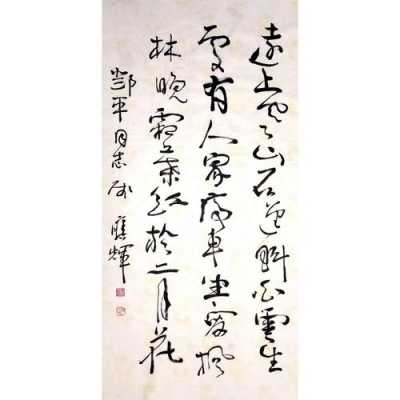 遠上寒山石逕斜白雲生
處有人家停車坐愛楓
林晚霜葉紅於二月花
平同志 應輝